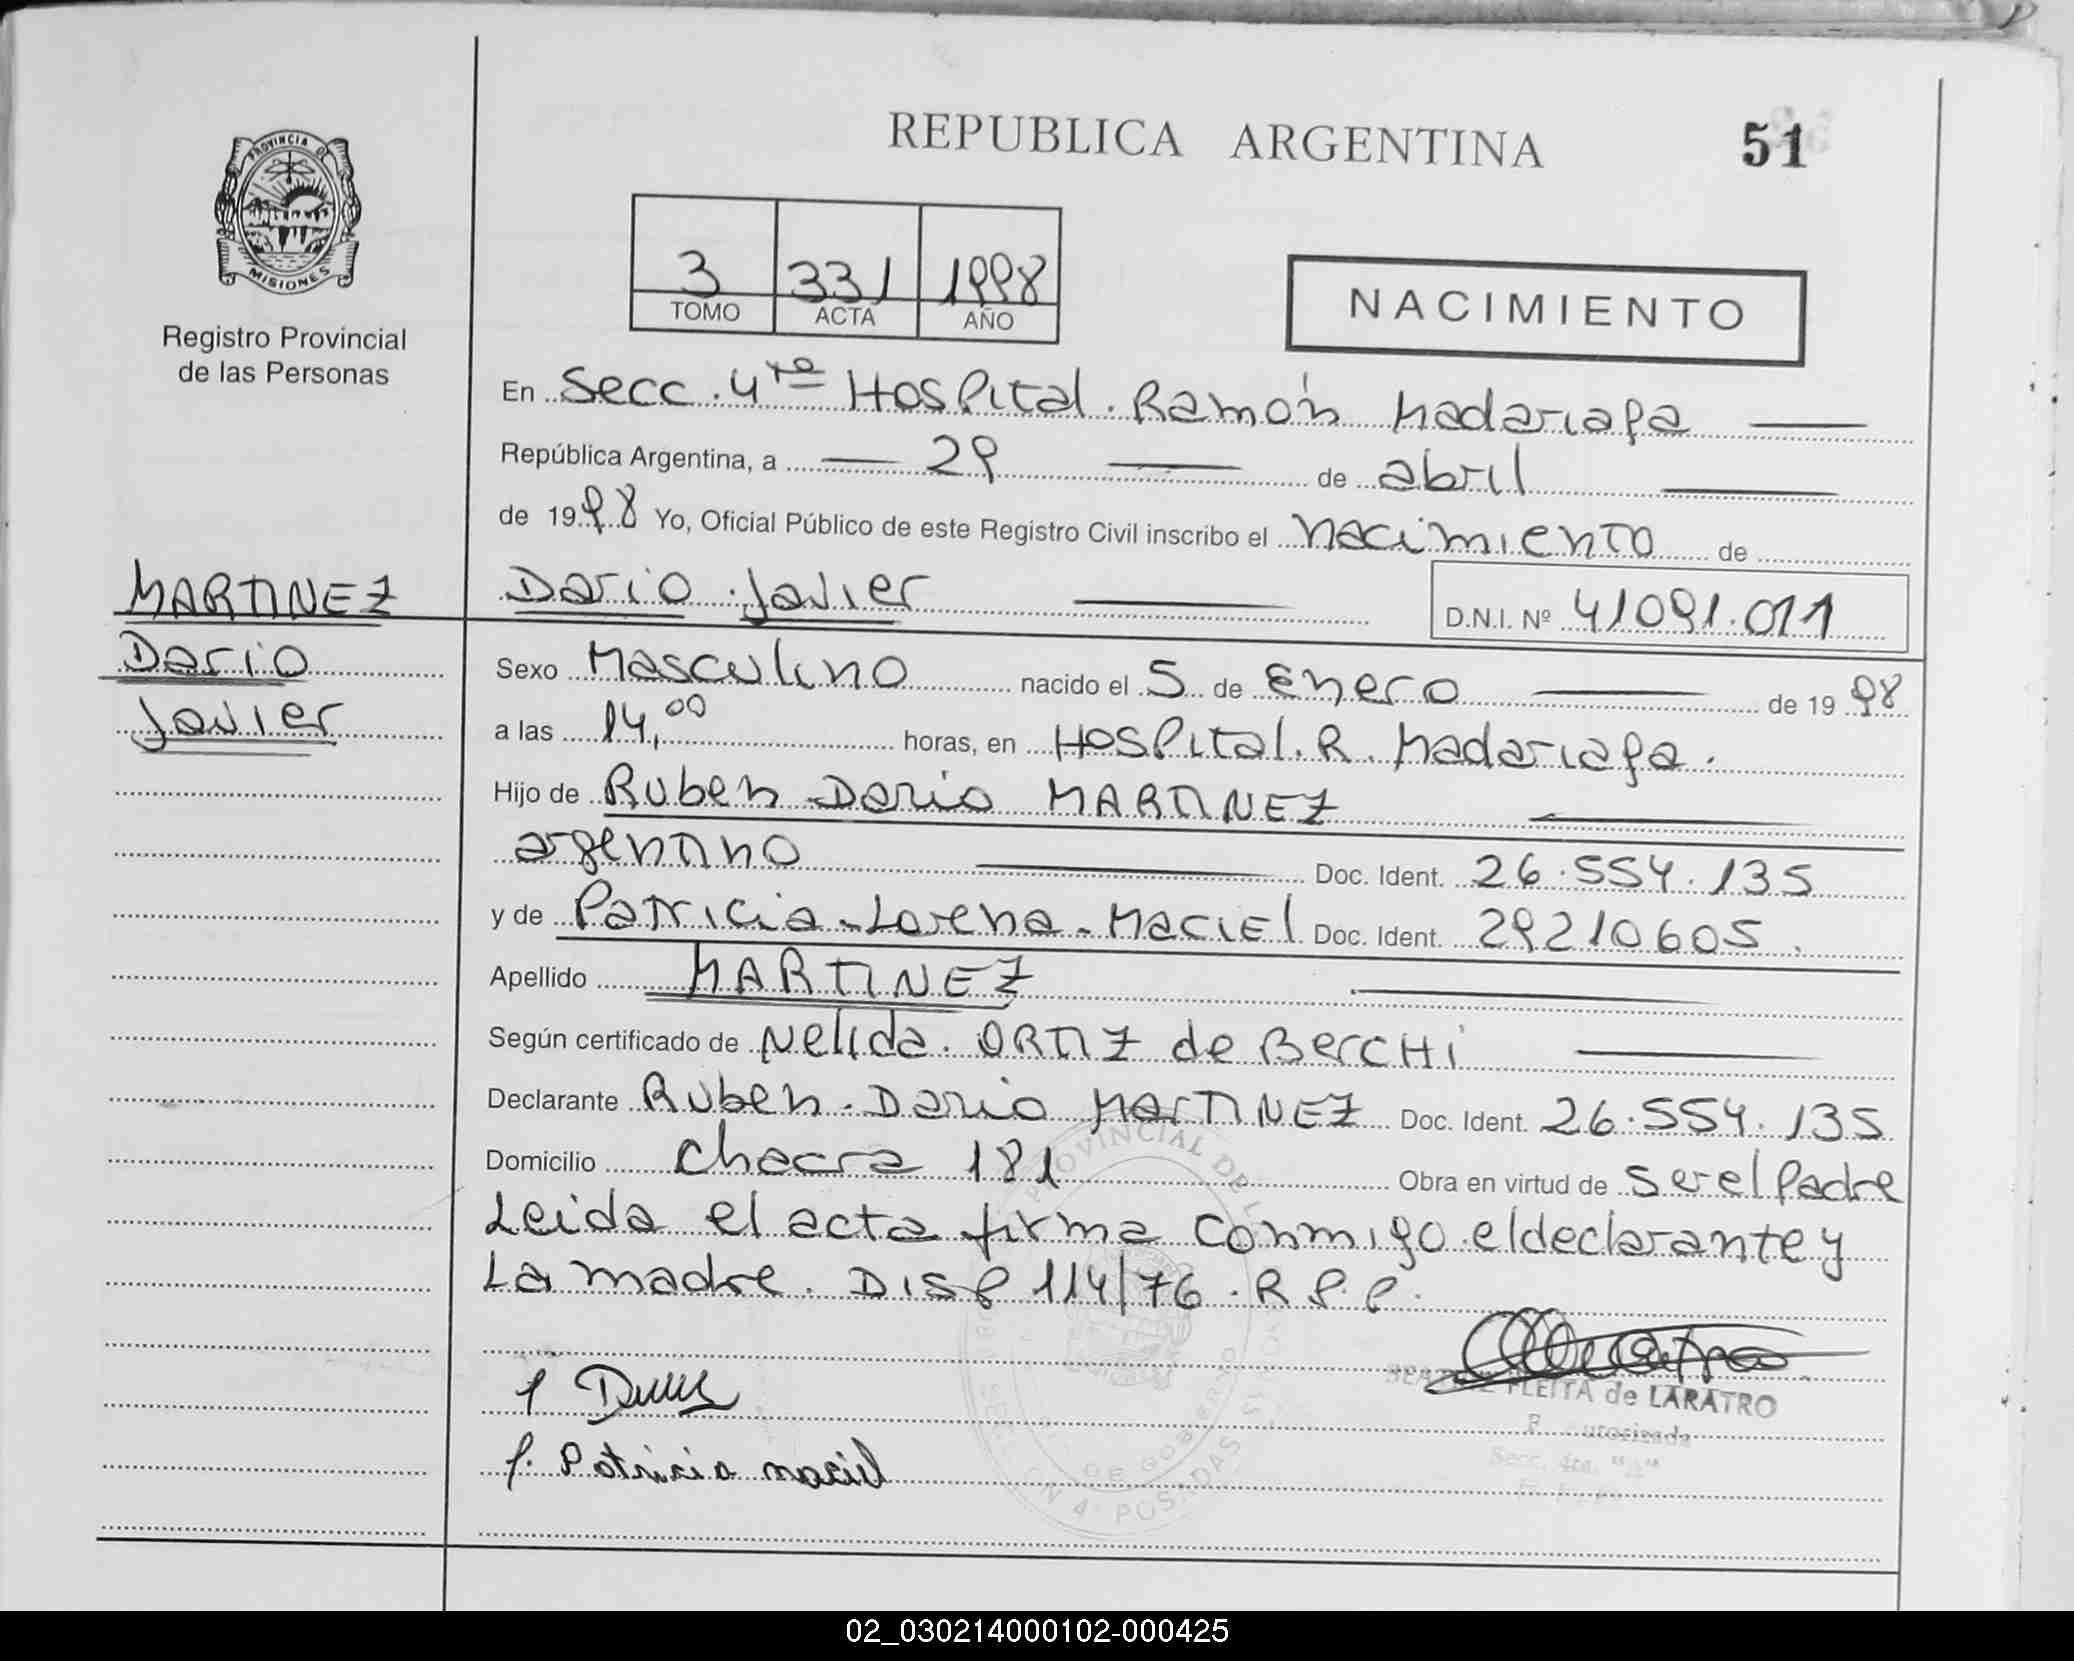 REPUBLICA ARGENTINA
51
PROVINCIA DE
MISIONES
Registro Provincial
de las Personas
3 331 1998
TOMO ACTA AÑO
NACIMIENTO
En Secc. 4ta Hospital. Ramón Madariaga
República Argentina, a 29 de abril
de 1998 Yo, Oficial Público de este Registro Civil inscribo el nacimiento de
MARTINEZ
Dario
Javier
Dario Javier D.N.I. Nº 41091.011
Sexo Masculino nacido el 5 de Enero de 1998
a las 14,00 horas, en Hospital. R. Madariaga.
Hijo de Ruben Dario MARTINEZ
argentino Doc. Ident. 26.554.135
y de Patricia-Lorena-Maciel Doc. Ident. 29210605.
Apellido MARTINEZ
Según certificado de Nelida. ORTIZ de BercHi
Declarante Ruben. Dario MARTINEZ Doc. Ident. 26.554.135
Domicilio chacra 181 Obra en virtud de ser el Padre
Leida el acta firma conmigo el declarante y
La madre. Disp 114/76. R.P.P.
P. Patricia maciel
PLEITA de LARATRO
utorizada
Secc. 4ta. "A"
PROVINCIAL DE L
DE GOBIERNO
N 4ª POSADAS
02_030214000102-000425